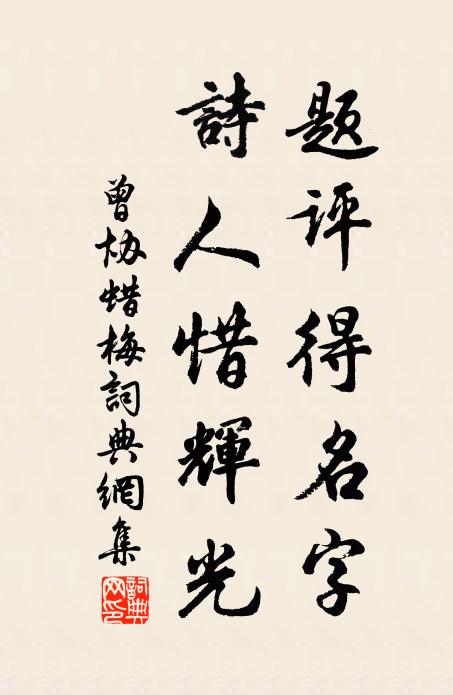 題評得名字
詩人惜輝光
曾协蜡梅詞典網集
詞典网印